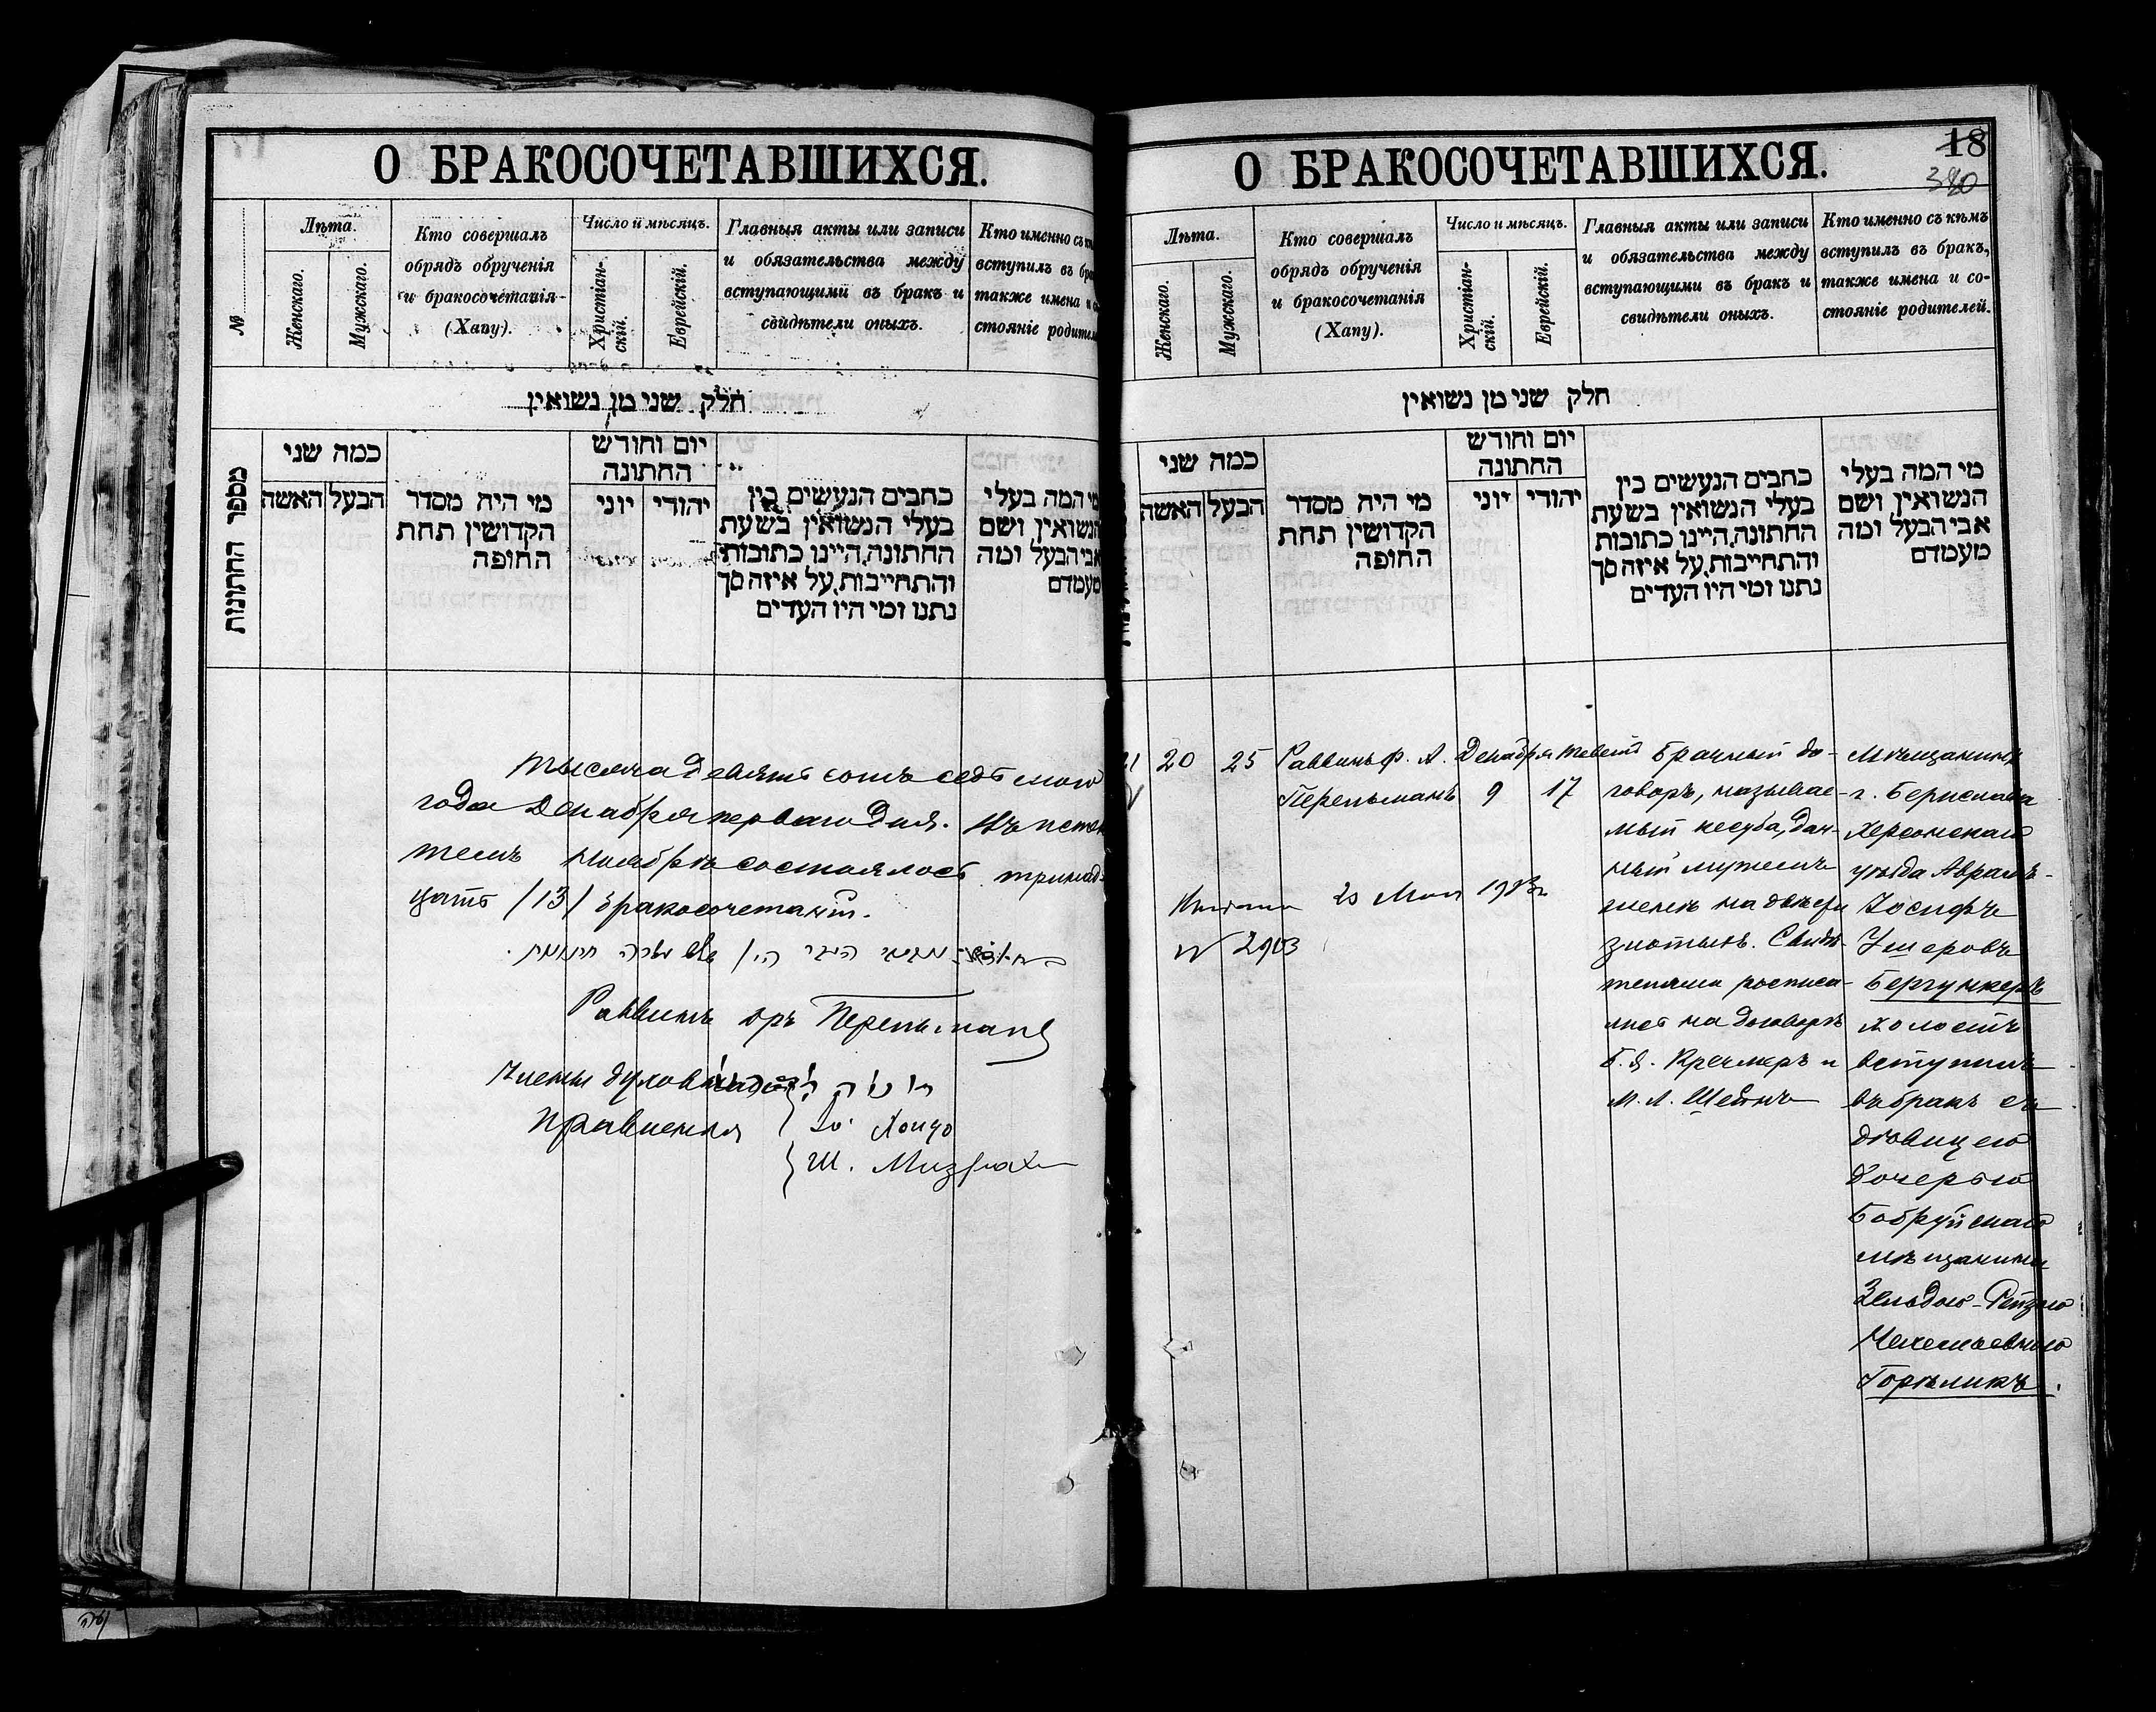 О БРАКОСОЧЕТАВШИХСЯ.
№
Лѣта.
Женскаго.
Мужскаго.
Кто совершалъ
обрядъ обрученія
и бракосочетанія
(Хапу).
Число и мѣсяцъ.
Христіан-
скій.
Еврейскій.
Главныя акты или записи
и обязательства между
вступающими въ бракъ и
свидѣтели оныхъ.
Кто именно съ
вступилъ въ
также имена и
стояніе
חלק שני מן נשואין
מספר החתונות
כמה שני
האשה
הבעל
מי היה מסדר
הקדושין תחת
החופה
יום וחודש
החתונה
יוני
יהודי
כתבים הנעשים בין
בעלי הנשואין בשעת
החתונה, היינו כתובות
והתחייבות, על איזה סך
נתנו ומי היו העדים
מי המה בעלי
הנשואין ושם
אבי הבעל ומה
מעמדם
Тысяча девятьсотъ седьмого
года Декабря перваго дня. Въ
темъ Ноябрѣ состоялось тринад-
цать /13/ бракосочетаній.
Раввинъ дръ Перельманъ
Члены духовнаго
Правленія
Хонго
Ш. Мизрахи
О БРАКОСОЧЕТАВШИХСЯ.
18
380
Лѣта.
Женскаго.
Мужскаго.
Кто совершалъ
обрядъ обрученія
и бракосочетанія
(Хапу).
Число и мѣсяцъ.
Христіан-
скій.
Еврейскій.
Главныя акты или записи
и обязательства между
вступающими въ бракъ и
свидѣтели оныхъ.
Кто именно съ кѣмъ
вступилъ въ бракъ,
также имена и со-
стояніе родителей.
חלק שני מן נשואין
כמה שני
האשה
הבעל
מי היה מסדר
הקדושין תחת
החופה
יום וחודש
החתונה
יוני
יהודי
כתבים הנעשים בין
בעלי הנשואין בשעת
החתונה, היינו כתובות
והתחייבות, על איזה סך
נתנו ומי היו העדים
מי המה בעלי
הנשואין ושם
אבי הבעל ומה
מעמדם
20
25
Раввинъ Ф. А.
Перельманъ
Декабря
9
Теветъ
17
Брачный до-
говоръ, называе-
мый кесуба, дан-
ный мужемъ
женѣ на двѣсти
злотыхъ. Свидѣ-
телями росписа-
лись на договорѣ
Б. Я. Кремеръ и
М. Л. Шейнъ
Мѣщанинъ
г. Берислава
Херсонскаго
уѣзда Аврамъ-
Іосифъ
Ушеровъ
Бергункеръ
холостъ
вступилъ
въ бракъ съ
дѣвицею
дочерью
Бобруйскаго
мѣщанина
Зельдою-Рейзою
Горѣликъ.
20 Мая
№ 2903